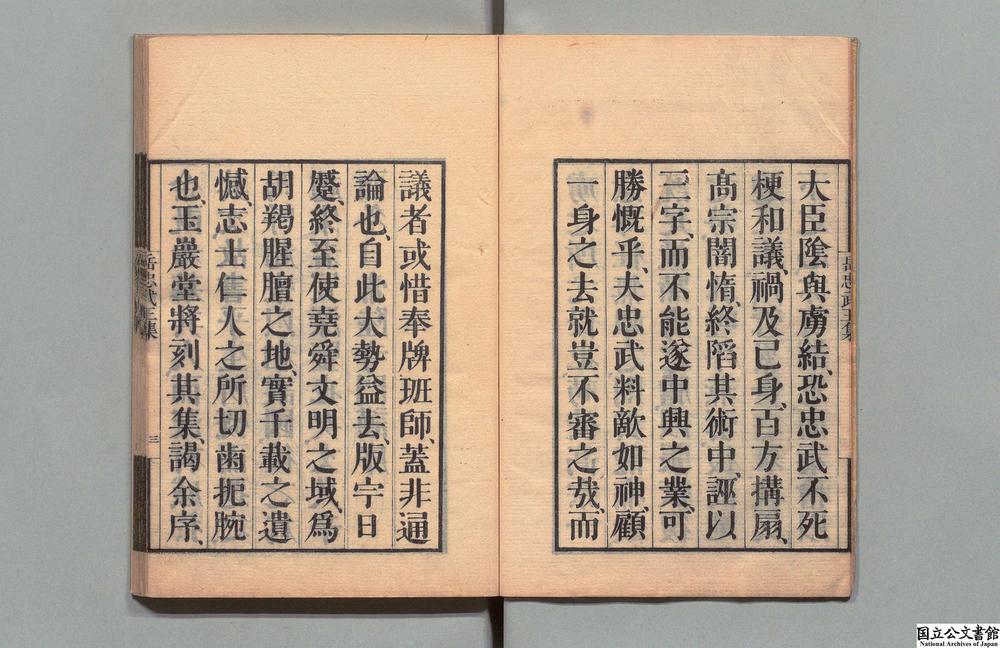 大臣陰與虜結、恐忠武不死
梗和議、禍及己身、百方搆扇、
髙宗闇惰、終䧟其術中、誣以
三字、而不能遂中興之業、可
勝慨乎、夫忠武料敵如神、顧
一身之去就豈不審之㢤、而
議者或惜奉牌班師、蓋非通
論也、自此大勢益去、版宇日
蹙、終至使堯舜文明之域、爲
胡羯腥膻之地、實千載之遺
憾、志士仁人之所切歯扼腕
也、玉巖堂將刻其集、謁余序、
岳忠武王集
岳忠武王集
三
国立公文書館
National Archives of Japan